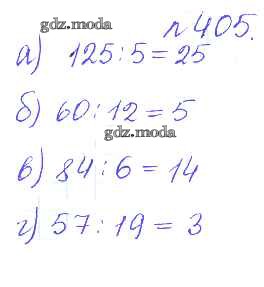 gdz.moda
№405.
а) 125:5=25
б) 60:12=5
gdz.moda
в) 84:6=14
г) 57:19=3